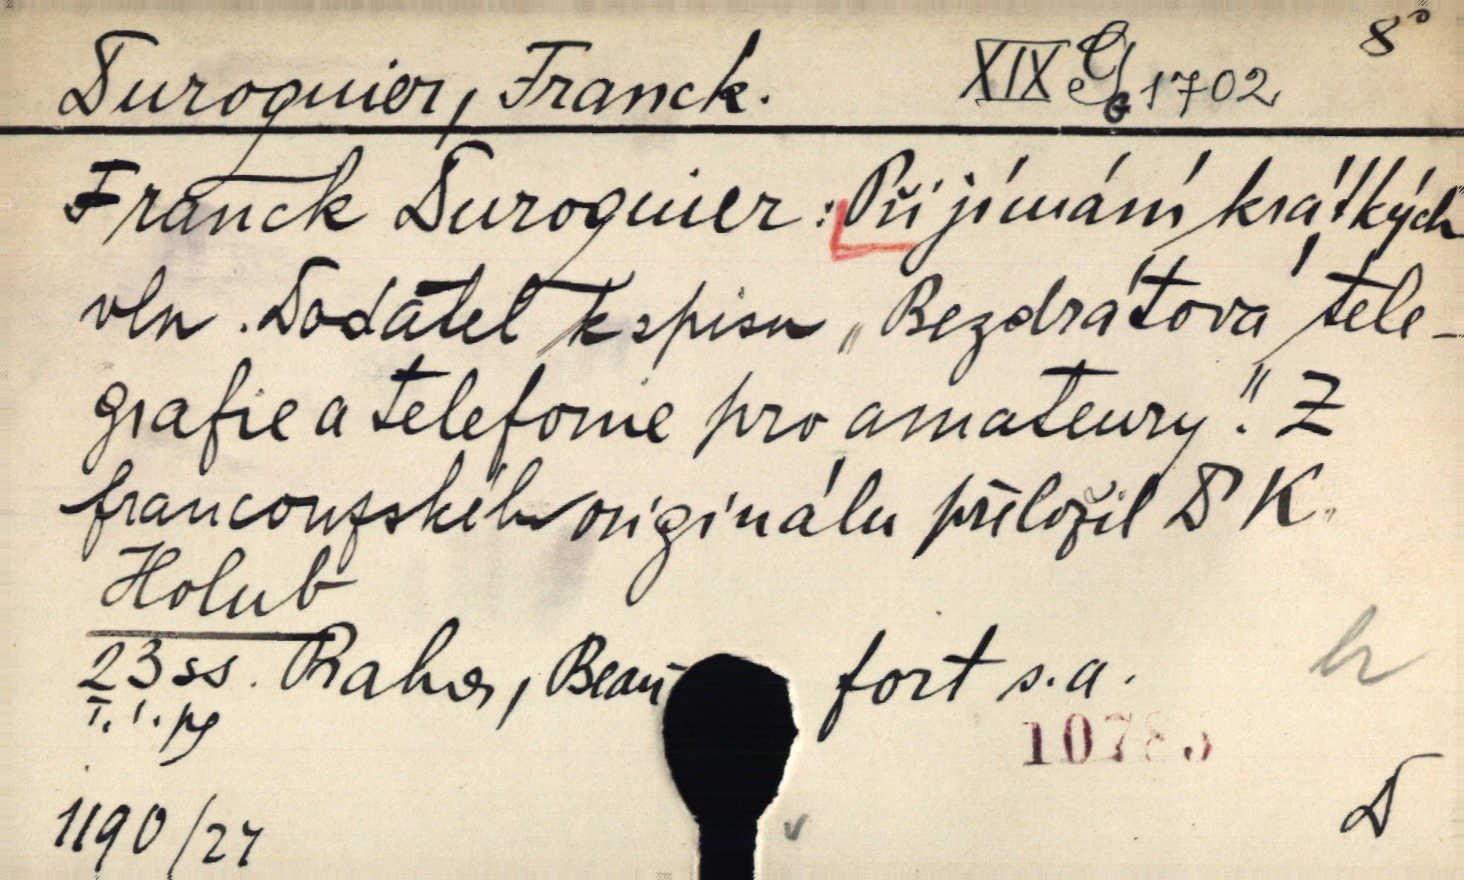 Duroquier, Franck. XIX G 1702 8°
Franck Duroquier: Přijímání krátkých
vln. Dodatek k spisu „Bezdrátová tele-
grafie a telefonie pro amateury". Z
francouzského originálu přeložil D K.
Holub
23 ss. Praha, Beau fort s.a.
1190/27
D